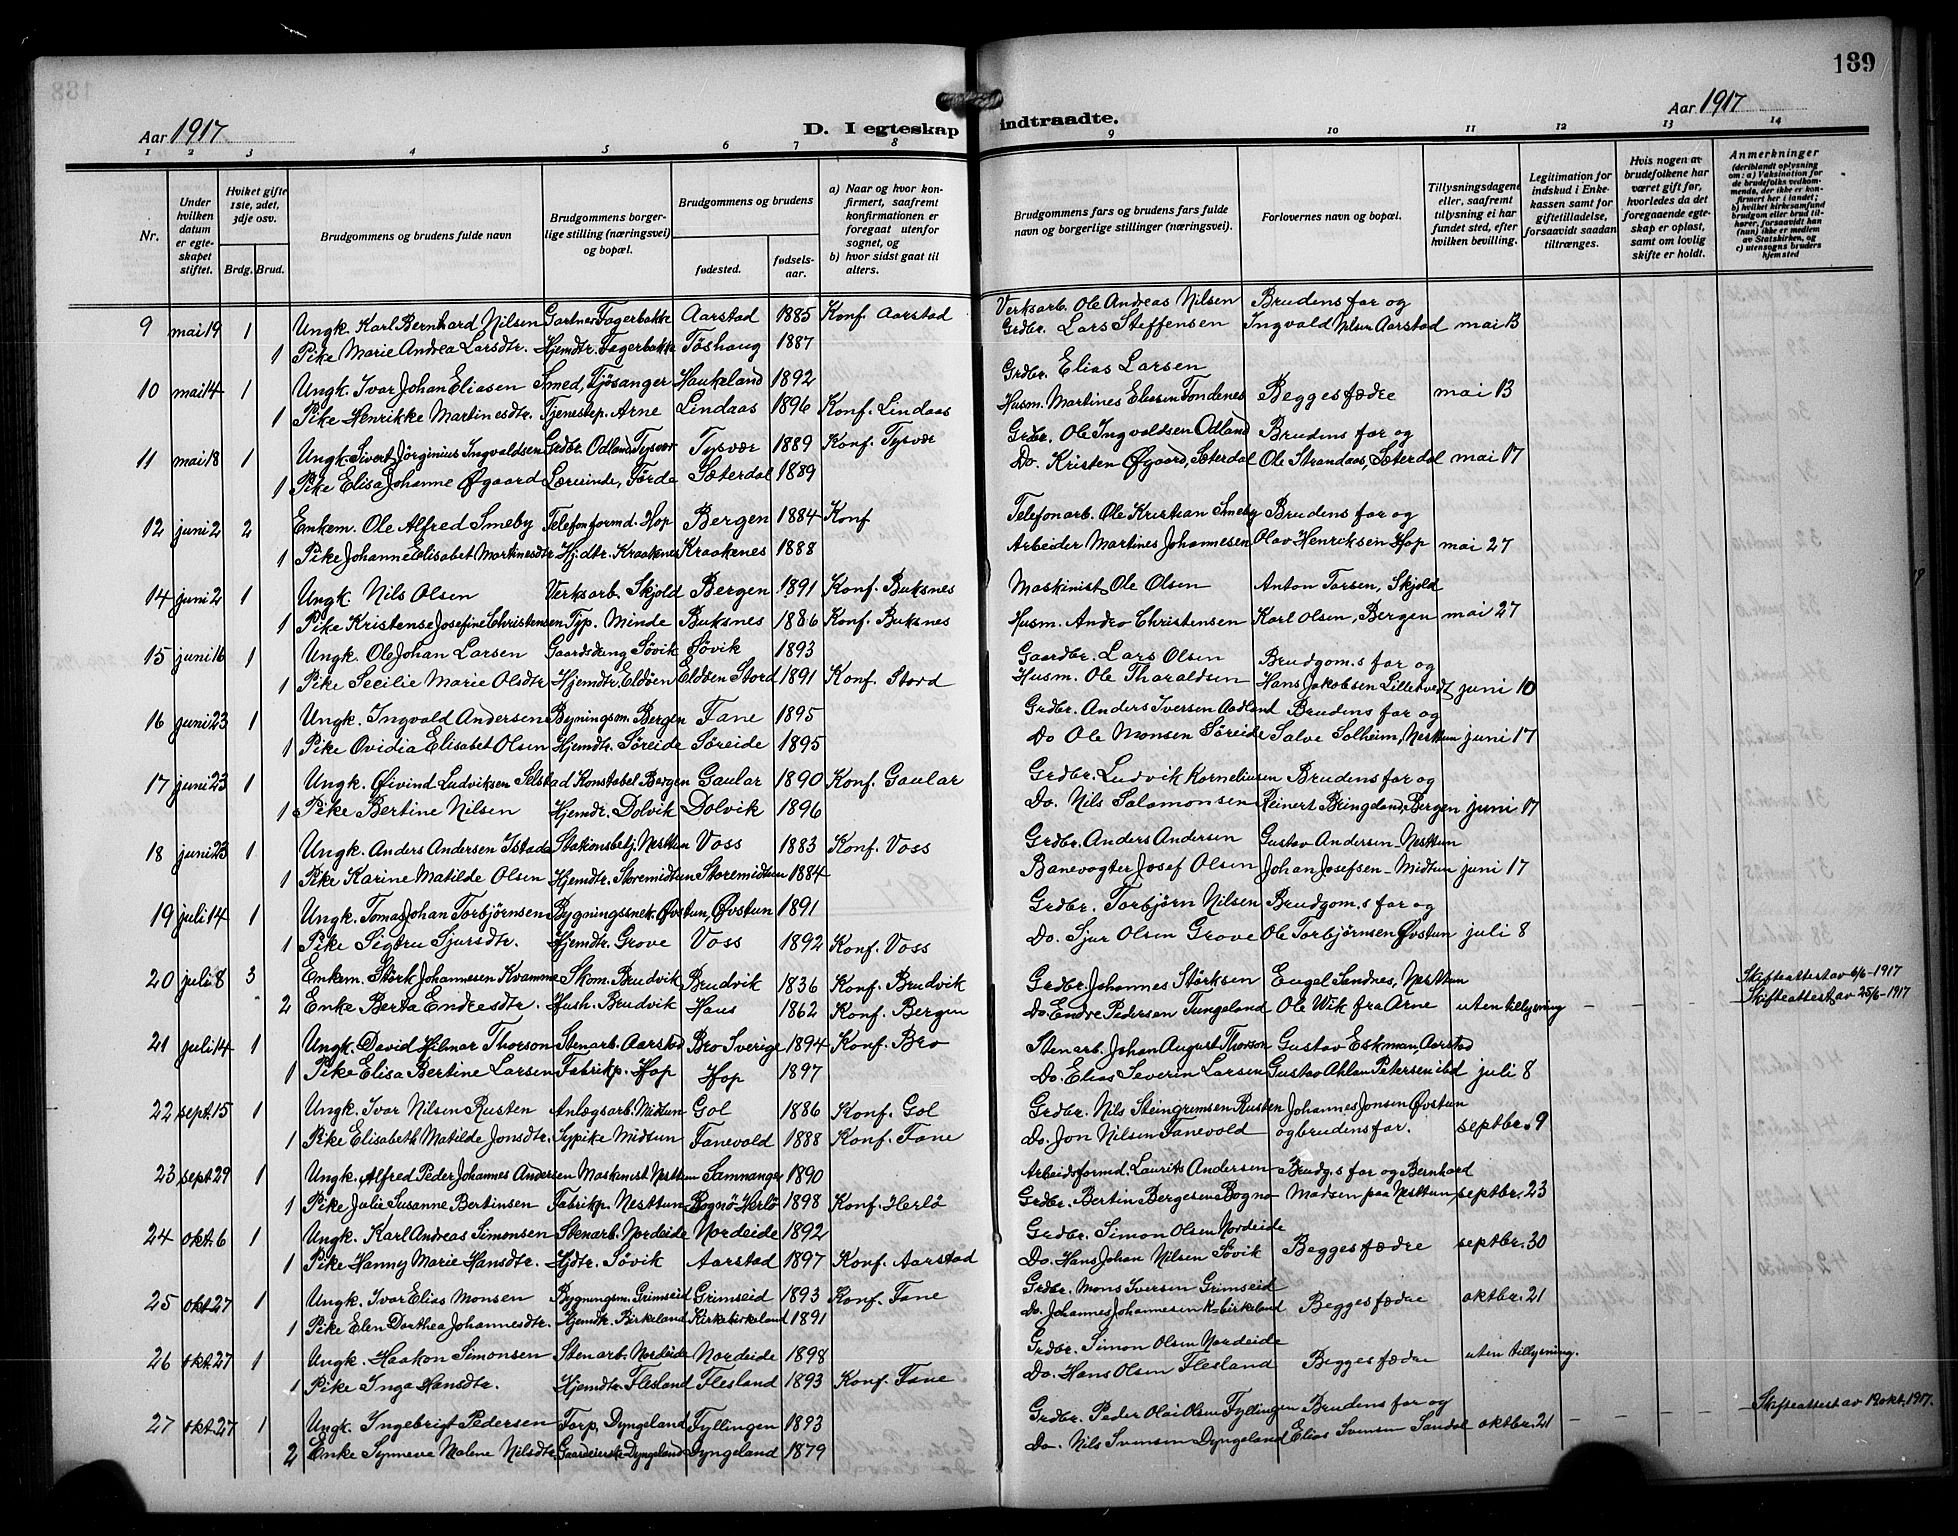 139
Aar 1917
D. I egteskap indtraadte.
Aar 1917
1 2 3 4 5 6 7 8 9 10 11 12 13 14
Nr.
Under hvilken datum er egteskapet stiftet.
Hviket gifte 1ste, 2det, 3dje osv.
Brdg. Brud.
Brudgommens og brudens fulde navn
Brudgommens borgerlige stilling (næringsvei) og bopæl.
Brudgommens og brudens
fødested.
fødselsaar.
a) Naar og hvor konfirmert, saafremt konfirmationen er foregaat utenfor sognet, og
b) hvor sidst gaat til alters.
Brudgommens fars og brudens fars fulde navn og borgerlige stillinger (næringsvei).
Forlovernes navn og bopæl.
Tillysningsdagene eller, saafremt tillysning ei har fundet sted, efter hvilken bevilling.
Legitimation for indskud i Enkekassen samt for giftetilladelse, forsaavidt saadan tiltrænges.
Hvis nogen av brudefolkene har været gift før, hvorledes da det foregaaende egteskap er opløst, samt om lovlig skifte er holdt.
Anmerkninger
(deriblandt oplysning om: a) Vaksination for de brudefolks vedkommende, der ikke er konfirmert her i landet; b) hvilket kirkesamfund brudgom eller brud tilhører, forsaavidt han (hun) ikke er medlem av Statskirken, og c) utensogns bruders hjemsted
9 mai 19 1 Ungk. Karl Bernhard Nilsen Gartner Fagerbakke Aarstad 1885 Konf. Aarstad Verksarb. Ole Andreas Nilsen Brudens far og
1 Pike Marie Andrea Larsdtr. Hjemdtr. Fagerbakke Töshaug 1887 Grdbr. Lars Steffensen Ingvald Nilsen Aarstad mai 13
10 mai 14 1 Ungk. Ivar Johan Eliasen Smed, Tjösanger Haukeland 1892 Grdbr. Elias Larsen
1 Pike Henrikke Martinesdtr. Tjenestep. Arne Lindaas 1896 Konf. Lindaas Husm. Martines Eliasen Tondenes Begges fædre mai 13
11 mai 18 1 Ungk. Sivert Jörginius Ingvaldsen Grdbr. Odland Tysvær Tysvær 1889 Konf. Tysvær Grdbr. Ole Ingvaldsen Odland Brudens far og
1 Pike Elisa Johanne Øfgaard Lærerinde, Förde Sæterdal 1889 Do. Kristen Øfgaard, Sæterdal Ole Strandaas, Sæterdal mai 17
12 juni 2 2 Enkem. Ole Alfred Smeby Telefonformd. Hop Bergen 1884 Konf Telefonarb. Ole Kristian Smeby Brudens far og
1 Pike Johanne Elisabet Martinesdtr Hjdtr. Kraaknes Kraakenes 1888 Arbeider Martines Johannesen Olav Henriksen Hop mai 27
14 juni 2 1 Ungk. Nils Olsen Verksarb. Skjold Bergen 1891 Konf. Buksnes Maskinist Ole Olsen Anton Tarsen, Skjold
1 Pike Kristense Josefine Christensen Typ. Minde Buksnes 1886 Konf. Buksnes Husm. Andro Christensen Karl Olsen, Bergen mai 27
15 juni 16 1 Ungk. Ole Johan Larsen Gaardsdreng Søvik Søvik 1893 Gaardbr. Lars Olsen Brudgom.s far og
1 Pike Secilie Marie Olsdtr Hjemdtr. Eldöen Eldöen Stord 1891 Konf. Stord Husm. Ole Tharaldsen Hans Jakobsen Lilletvedt juni 10
16 juni 23 1 Ungk. Ingvald Andersen Bygningsm. Bergen Fane 1895 Grdbr. Anders Iversen Aadland Brudens far og
1 Pike Ovidia Elisabet Olsen Hjemdtr. Søreide Søreide 1895 Do Ole Monsen Søreide Salve Solheim, Nesttun juni 17
17 juni 23 1 Ungk. Øivind Ludviksen Selstad Konstabel Bergen Gaular 1890 Konf. Gaular Grdbr. Ludvik Korneliusen Brudens far og
1 Pike Bertine Nilsen Hjemdtr. Dolvik Dolvik 1896 Do. Nils Salamonsen Reinert Bringdand, Bergen juni 17
18 juni 23 1 Ungk. Anders Andersen Istad Stationsbetj. Nesttun Voss 1883 Konf. Voss Grdbr. Anders Andersen Gustav Andersen-Nesttun
1 Pike Karine Matilde Olsen Hjemdtr. Storemidtun Storemidtun 1884 Banevogter Josef Olsen Johan Josefsen-Midtun juni 17
19 juli 14 1 Ungk. Tomas Johan Torbjørnsen Bygningssnek. Øvstun, Øvstun 1891 Grdbr. Torbjörn Nilsen Brudgom.s far og
1 Pike Sigtru Sjursdtr. Hjemdtr. Grove Voss 1892 Konf. Voss Do. Sjur Olsen Grove Ole Torbjørnsen Øvstun juli 8
20 juli 8 3 Enkem. Störk Johannesen Kvamme Skom. Brudvik Brudvik 1836 Konf. Brudvik Grdbr. Johannes Störksen Engel Sandnes, Nesttun Skifteattest av 6/6-1917
2 Enke Berta Endresdtr. Hush. Brudvik Haus 1862 Konf. Bergen Do. Endre Pedersen Tungeland Ole Wik fra Arne uten tillysning - - - - Skifteattest av 25/6-1917
21 juli 14 1 Ungk. David Hilmar Thorson Stenarb. Aarstad Bro Sverige 1894 Konf. Bro Stenarb. Johan August Thorson Gustav Eskman, Aarstad
1 Pike Elisa Bertine Larsen Fabrikp. Hop Hop 1897 Do. Elias Severin Larsen Gustav Ahlan Petersen ibd juli 8
22 sept. 15 1 Ungk. Ivar Nilsen Rusten Anlægsarb. Midtun Gol 1886 Konf. Gol Grdbr. Nils Steingrimsen Rusten Johannes Jonsen Øvstun
1 Pike Elisabeth Matilde Jonsdtr. Sypike Midtun Fanevold 1888 Konf. Fane Do. Jon Nilsen Fanevold og brudens far. septbr. 9
23 sept 29 1 Ungk. Alfred Peder Johannes Andersen Maskinist Nesttun Samnanger 1890 Arbeidsformd. Laurits Andersen Brudg.s far og Bernhard
1 Pike Julie Susanne Bertinsen Fabrikp. Nesttun Bognö Herlö 1898 Konf. Herlö Grdbr. Bertin Bergesen Bogno Madsen paa Nesttun septbr. 23
24 okt. 6 1 Ungk. Karl Andreas Simonsen Stenarb. Nordeide Nordeide 1892 Grdbr. Simon Olsen Nordeide
1 Pike Hanny Marie Hansdtr. Hjdtr. Søvik Aarstad 1897 Konf. Aarstad Do. Hans Johan Nilsen Søvik Begges fædre septbr. 30
25 okt. 27 1 Ungk. Ivar Elias Monsen Bygningsm. Grimseid Grimseid 1893 Konf. Fane Grdbr. Mons Iversen Grimseid
1 Pike Elen Dorthea Johannesdtr. Hjemdtr. Birkeland Kirkebirkeland 1891 Do. Johannes Johannesen K-birkeland Begges fædre oktbr. 21
26 okt. 27 1 Ungk. Haakon Simonsen Stenarb. Nordeide Nordeide 1898 Grdbr. Simon Olsen Nordeide
1 Pike Inga Hansdtr. Hjemdtr. Flesland Flesland 1893 Konf. Fane Do. Hans Olsen Flesland Begges fædre uten tillysning.
27 okt. 27 1 Ungk. Ingebrigt Pedersen Forp. Dyngeland Fyllingen 1893 Grdbr. Peder Olai Olsen Fyllingen Brudens far og Skifteattest av 19 okt. 1917.
2 Enke Synneve Malene Nilsdtr. Gaardeierske Dyngeland Dyngeland 1879 Do. Nils Svensen Dyngeland Elias Svensen Sandal oktbr. 21